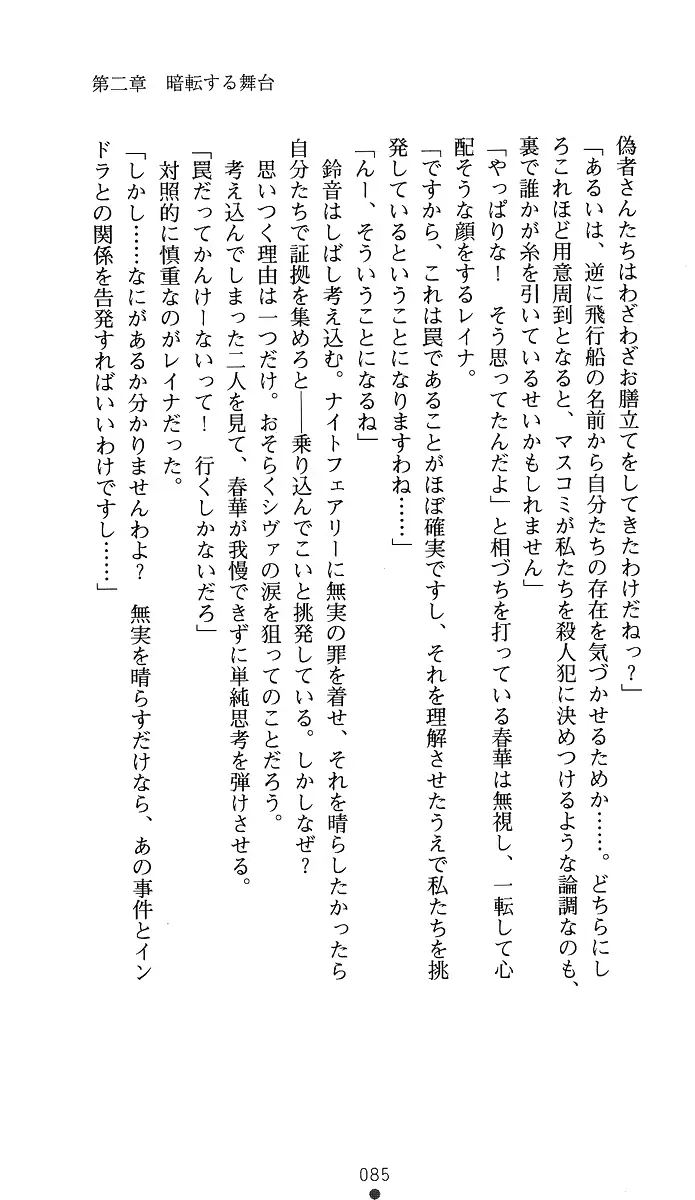 第二章　暗転する舞台
偽者さんたちはわざわざお膳立てをしてきたわけだねっ？」
「あるいは、逆に飛行船の名前から自分たちの存在を気づかせるためか……。どちらにし
ろこれほど用意周到となると、マスコミが私たちを殺人犯に決めつけるような論調なのも、
裏で誰かが糸を引いているせいかもしれません」
「やっぱりな！　そう思ってたんだよ」と相づちを打っている春華は無視し、一転して心
配そうな顔をするレイナ。
「ですから、これは罠であることがほぼ確実ですし、それを理解させたうえで私たちを挑
発しているということになりますわね……」
「んー、そういうことになるね」
鈴音はしばし考え込む。ナイトフェアリーに無実の罪を着せ、それを晴らしたかったら
自分たちで証拠を集めろと――乗り込んでこいと挑発している。しかしなぜ？
思いつく理由は一つだけ。おそらくシヴァの涙を狙ってのことだろう。
考え込んでしまった二人を見て、春華が我慢できずに単純思考を弾けさせる。
「罠だってかんけーないって！　行くしかないだろ」
対照的に慎重なのがレイナだった。
「しかし……なにがあるか分かりませんわよ？　無実を晴らすだけなら、あの事件とイン
ドラとの関係を告発すればいいわけですし……」
085